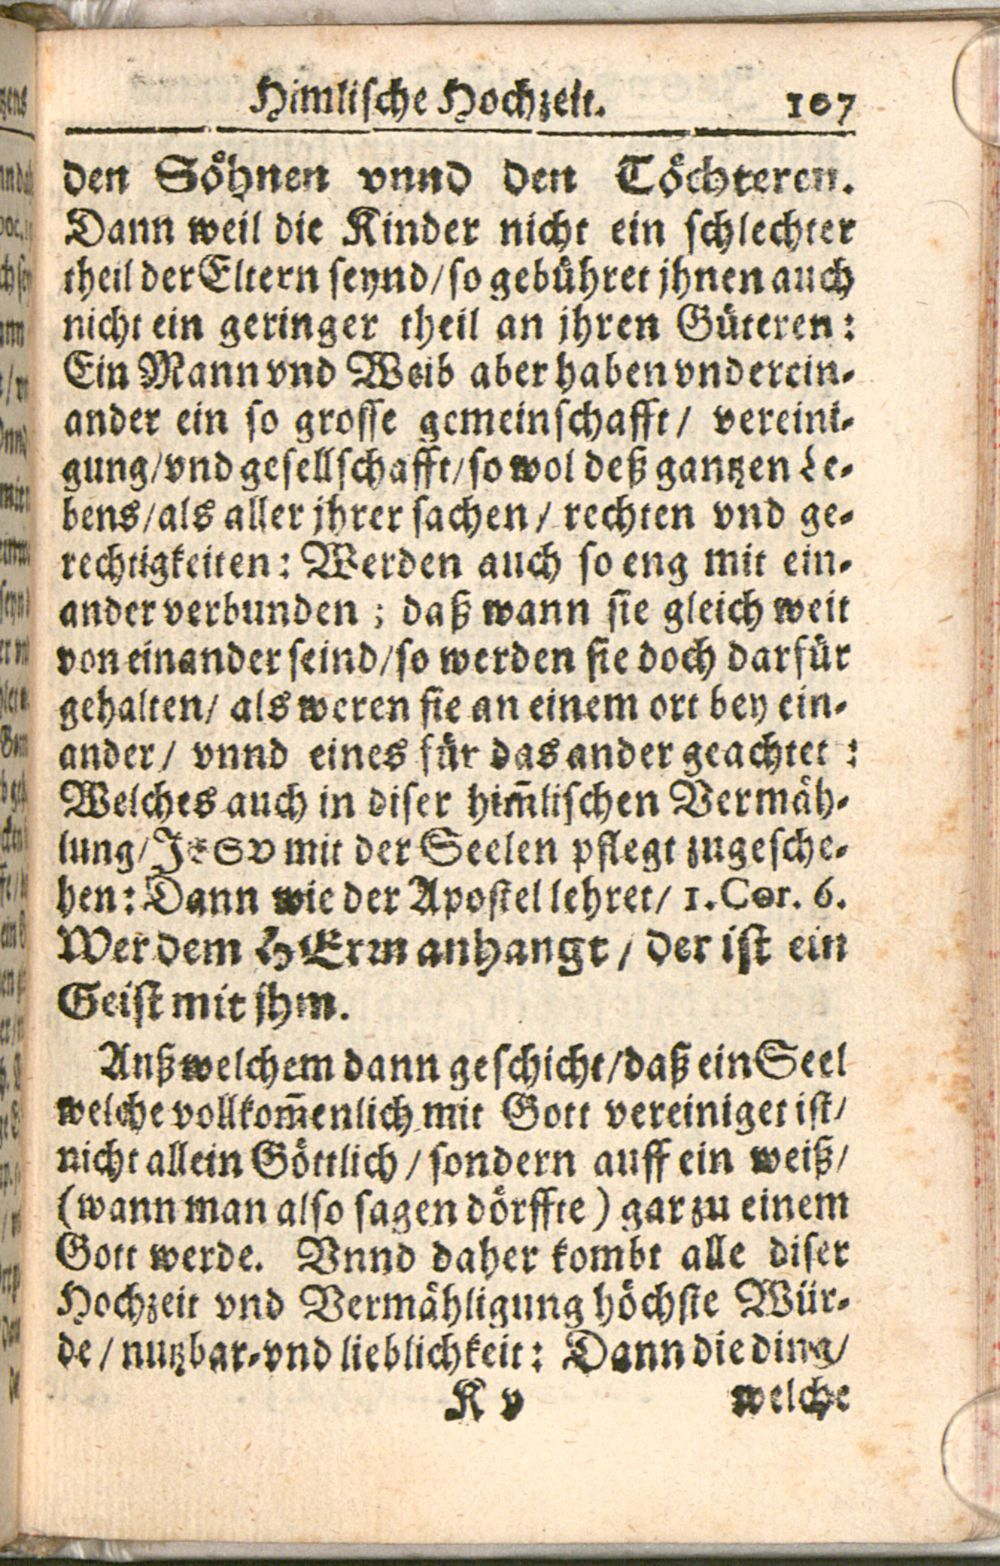 Himlische Hochzeit. 107
den Söhnen vnnd den Töchteren.
Dann weil die Kinder nicht ein schlechter
theil der Eltern seynd/so gebühret jhnen auch
nicht ein geringer theil an jhren Güteren:
Ein Mann vnd Weib aber haben vnderein-
ander ein so grosse gemeinschafft/ vereini-
gung/vnd gesellschafft/so wol deß gantzen Le-
bens/als aller jhrer sachen/ rechten vnd ge-
rechtigkeiten: Werden auch so eng mit ein-
ander verbunden; daß wann sie gleich weit
von einander seind/so werden sie doch darfür
gehalten/ als weren sie an einem ort bey ein-
ander/ vnnd eines für das ander geachtet:
Welches auch in diser him̃lischen Vermäh-
lung/JESV mit der Seelen pflegt zugesche-
hen: Dann wie der Apostel lehret/ 1. Cor. 6.
Wer dem HErrn anhangt/ der ist ein
Geist mit jhm.
Auß welchem dann geschicht/daß ein Seel
welche vollkom̃enlich mit Gott vereiniget ist/
nicht allein Göttlich/ sondern auff ein weiß/
(wann man also sagen dörffte) gar zu einem
Gott werde. Vnnd daher kombt alle diser
Hochzeit vnd Vermähligung höchste Wür-
de/ nutzbar-vnd lieblichkeit: Dann die ding/
K v welche